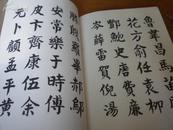 魯韋昌馬苗
花方俞任袁柳
酆鮑史唐費廉
岑薛雷賀倪湯
殷羅畢郝鄔
安常樂於時傅
皮卞齊康伍余
元卜顧孟平黃